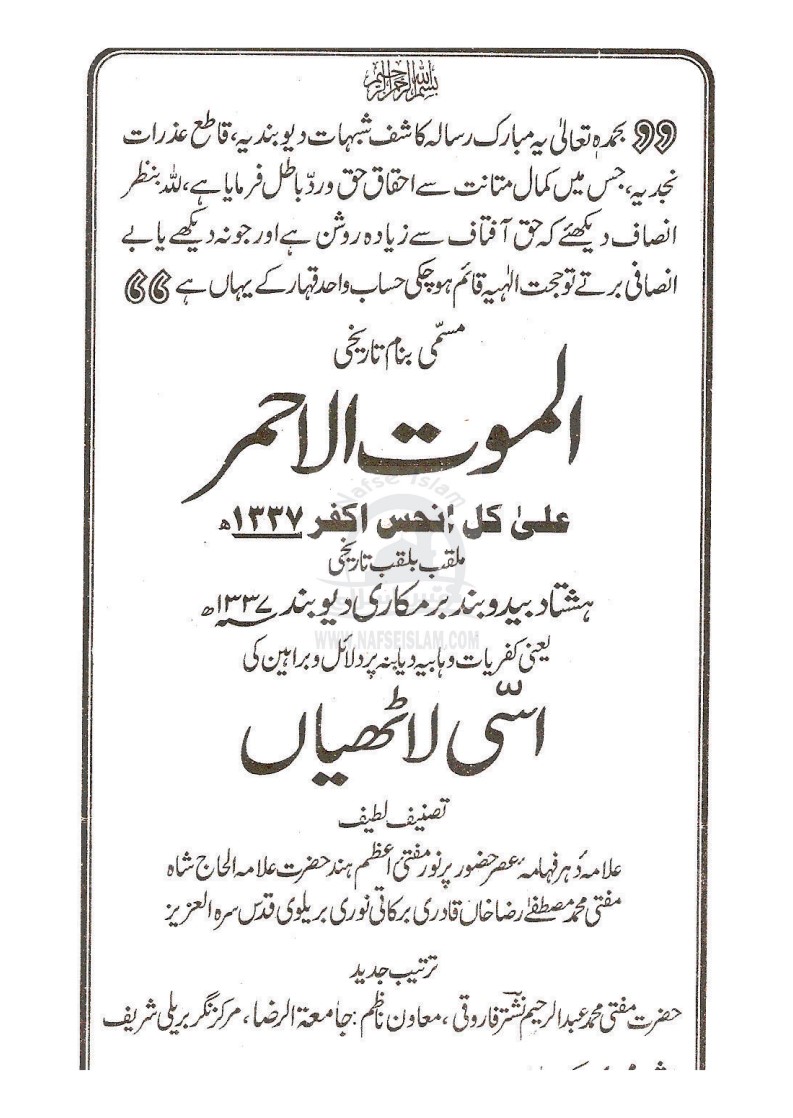 بسم اللہ الرحمن الرحیم
بحمدہٖ تعالیٰ یہ مبارک رسالہ کاشف شبہات دیوبندیہ، قاطع عذرات
نجدیہ، جس میں کمال متانت سے احقاق حق و ردّ باطل فرمایا ہے، للہ بنظر
انصاف دیکھئے کہ حق آفتاف سے زیادہ روشن ہے اور جو نہ دیکھے یا بے
انصافی برتے تو حجت الٰہیہ قائم ہوچکی حساب واحد قہار کے یہاں ہے
مسمّٰی بنام تاریخی
الموت الاحمر
علیٰ کل انحس اکفر ۱۳۳۷ھ
ملقب بلقب تاریخی
ہشتاد بید و بند بر مکاری دیوبند ۱۳۳۷ھ
WWW.NAFSEISLAM.COM
یعنی کفریات وہابیہ دیابنہ پر دلائل و براہین کی
اسّی لاٹھیاں
تصنیف لطیف
علامۂ دہر فہامۂ عصر حضور پرنور مفتئ اعظم ہند حضرت علامہ الحاج شاہ
مفتی محمد مصطفےٰ رضا خاں قادری برکاتی نوری بریلوی قدس سرہ العزیز
ترتیب جدید
حضرت مفتی محمد عبدالرحیم نشتر فاروقی، معاون ناظم: جامعۃ الرضا، مرکز نگر بریلی شریف